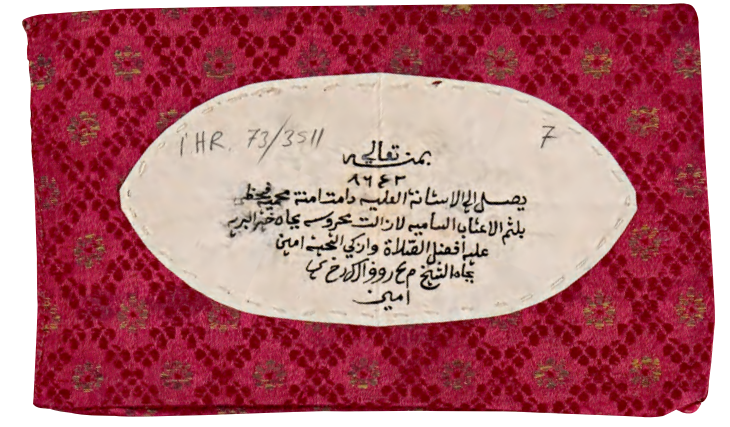 IHR. 73/3511 7
بمنه تعالى
٨٦٤٢
يصل إلى الاستانة العلية دامت امنة محمية
بلثم الاعتاب السامية لا زالت محروسة بجاه خير البرية
عليه أفضل الصلاة وازكى التحية امين
بجاه الشيخ
امين